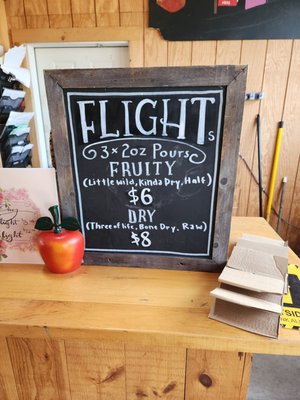 FLIGHTs
3 x 2oz Pours
FRUITY
(Little wild, Kinda Dry, Half)
$6
DRY
(Three of life, Bone Dry, Raw)
$8